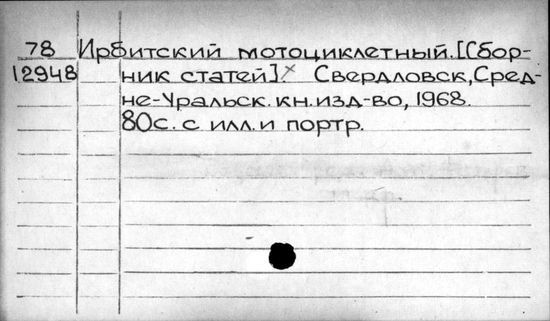 78 Ирбитский мотоциклетный. [Сбор-
12948 ник статей].× Свердловск, Сред-
не-Уральск. кн. изд-во, 1968.
80с. с илл. и портр.